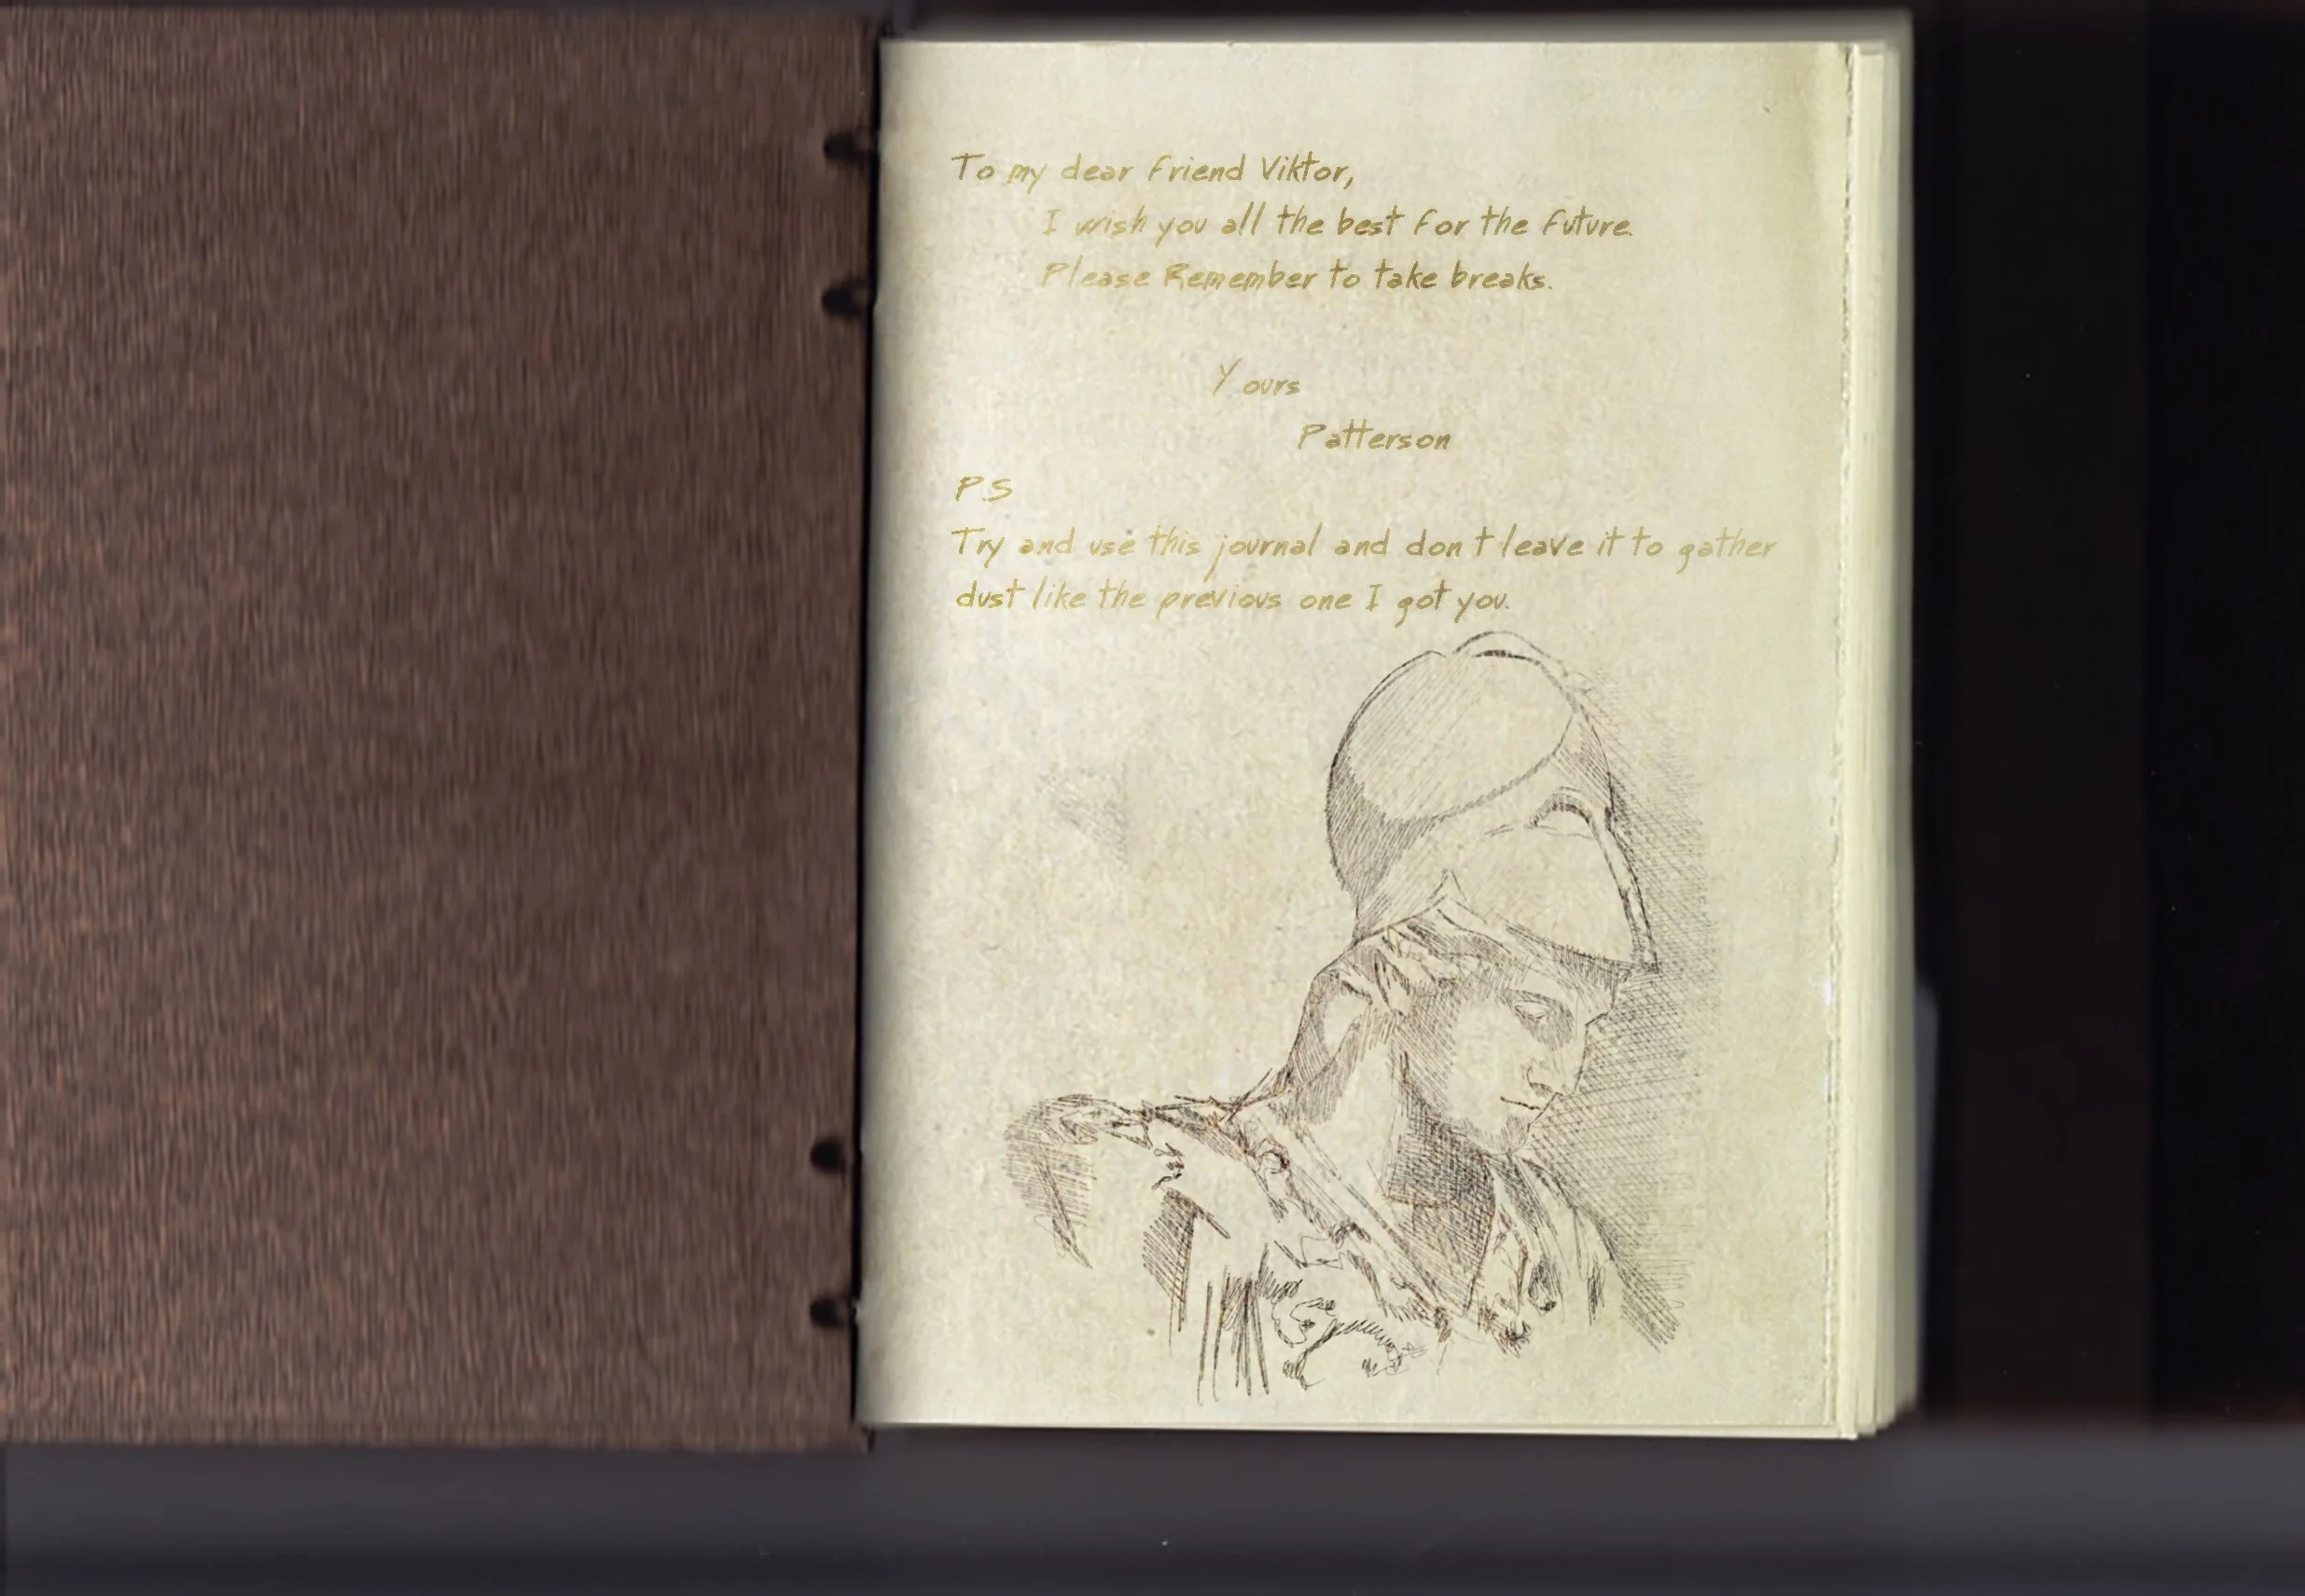 To my dear friend Viktor,
I wish you all the best for the future.
Please Remember to take breaks.
Yours
Patterson
P.S
Try and use this journal and don't leave it to gather
dust like the previous one I got you.